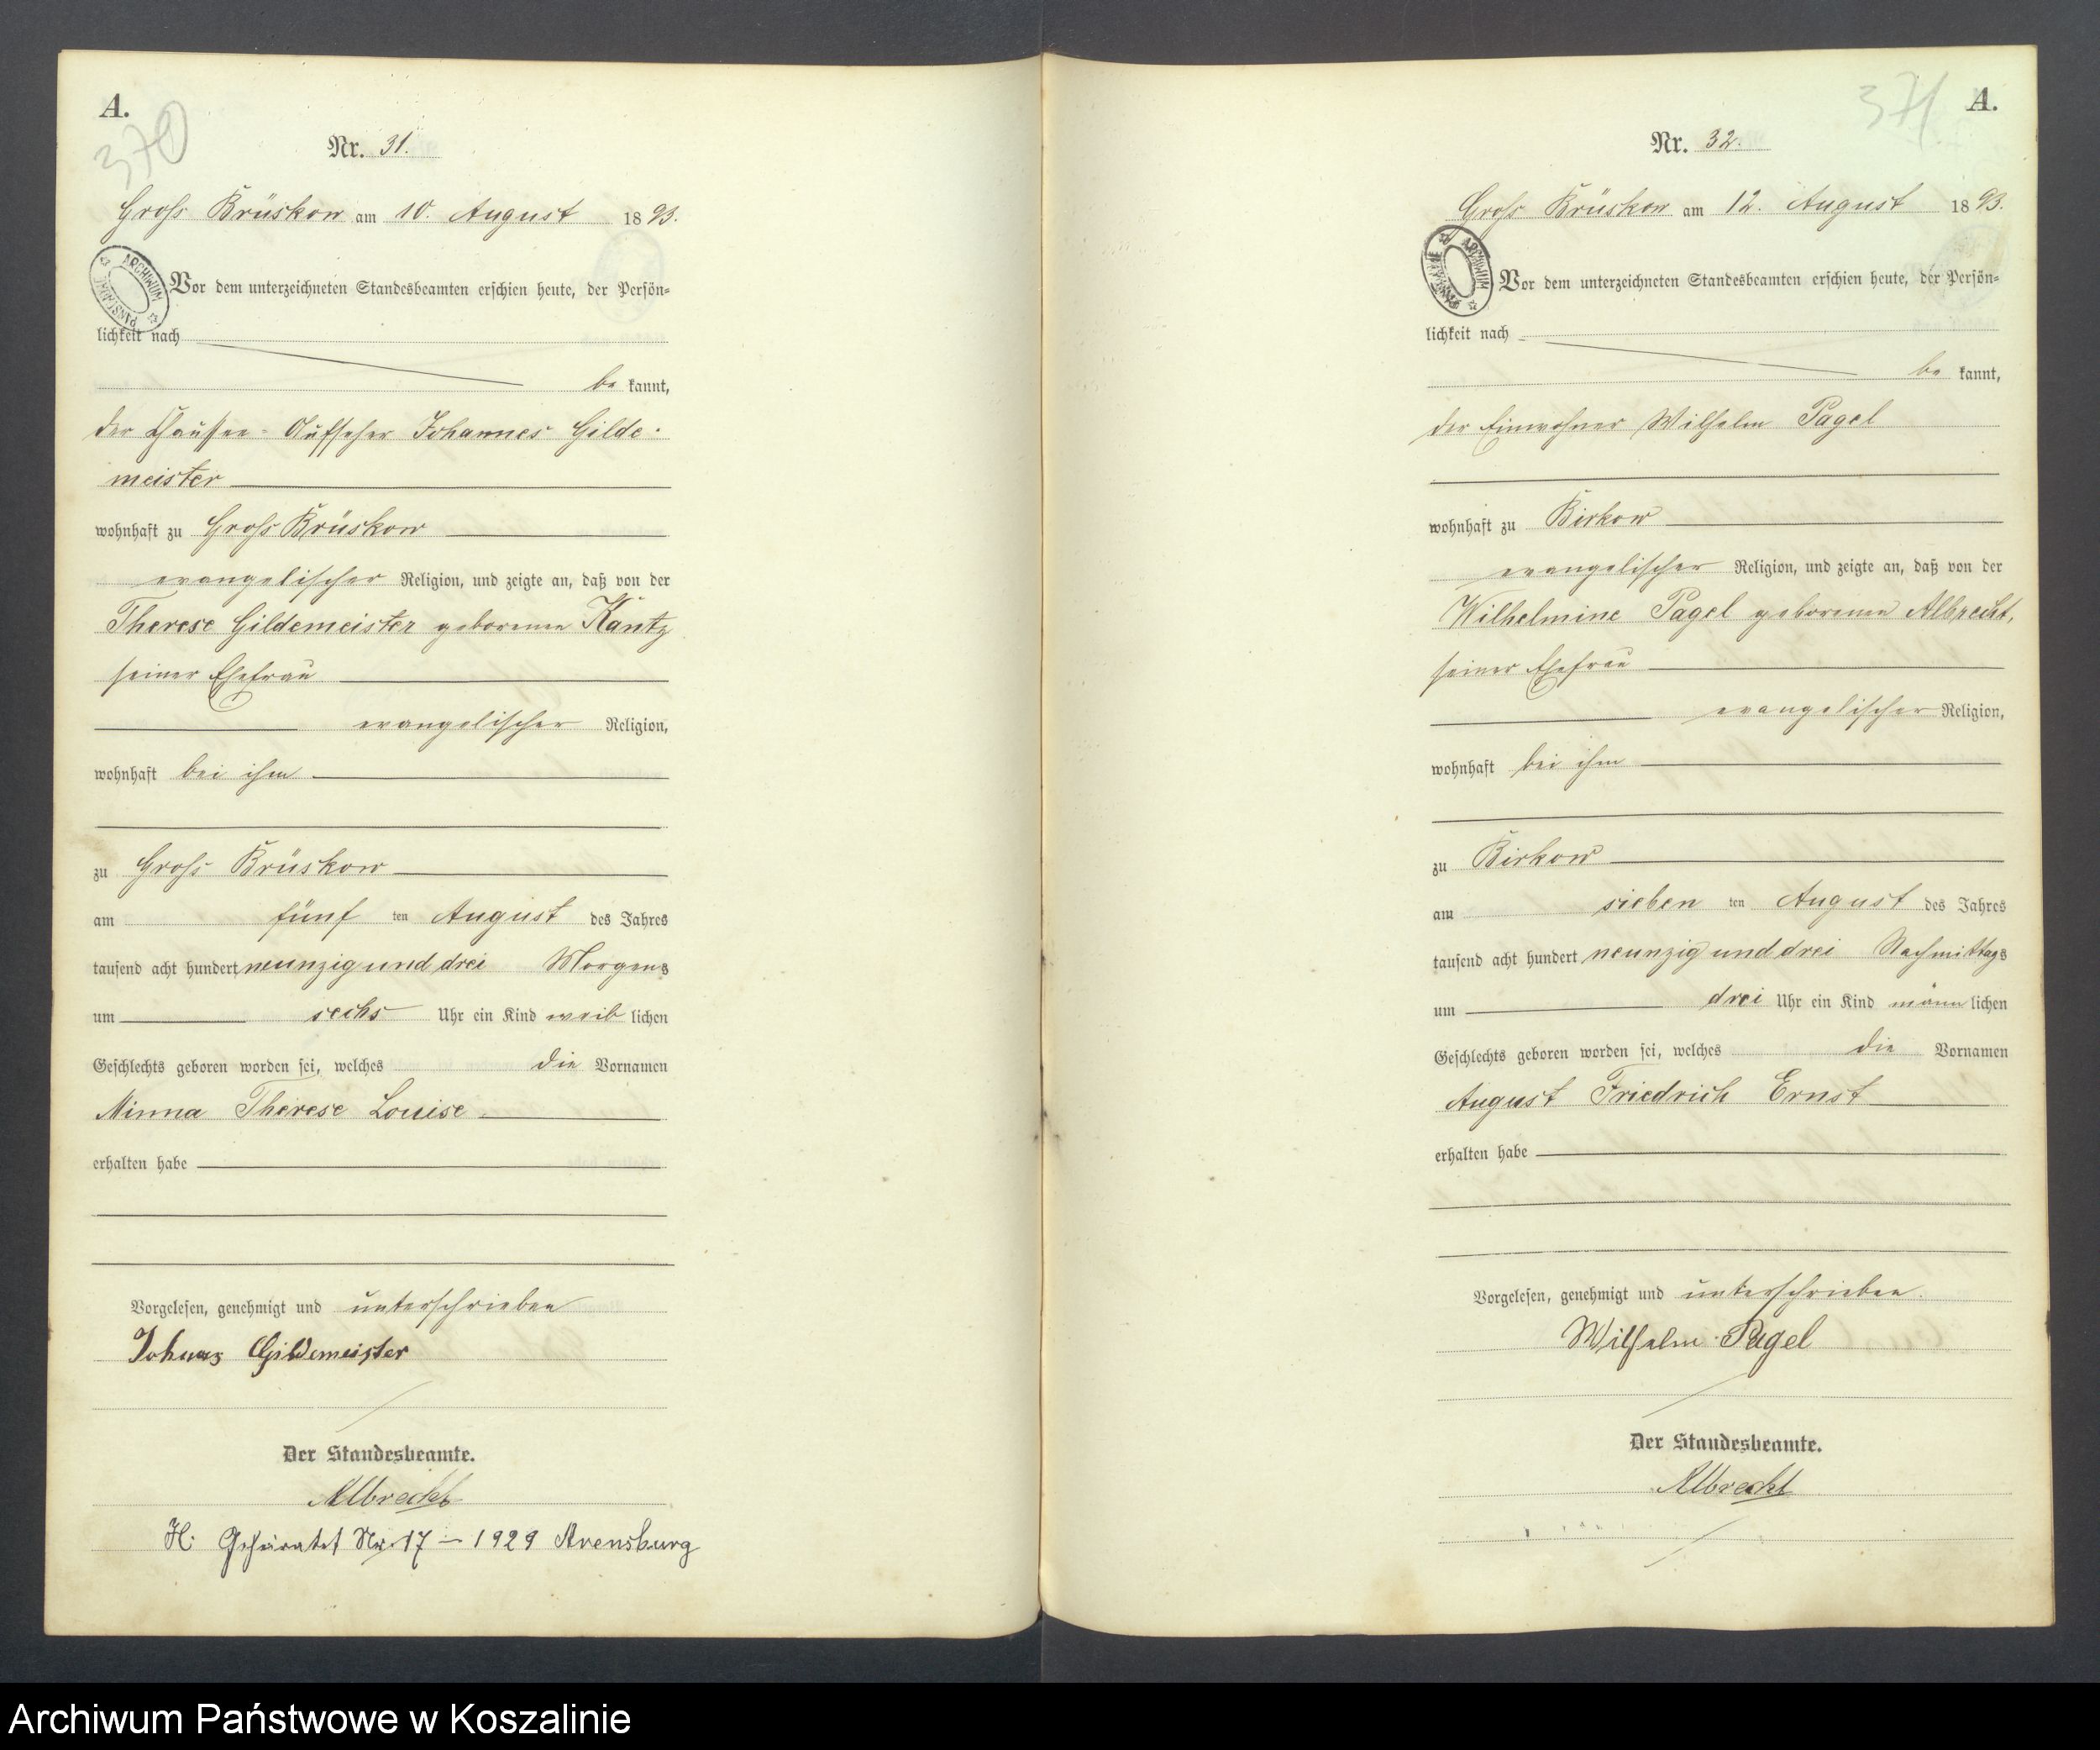 A.
370
Nr. 31.
Gross Brüskow am 10. August 1893.
ARCHIWUM PAŃSTWOWE
Vor dem unterzeichneten Standesbeamten erschien heute, der Persön=
lichkeit nach
be kannt,
der Chaussee-Aufseher Johannes Gilde-
meister
wohnhaft zu Gross Brüskow
evangelischer Religion, und zeigte an, daß von der
Therese Gildemeister geborenen Kantz
seiner Ehefrau
evangelischer Religion,
wohnhaft bei ihm
zu Gross Brüskow
am fünf ten August des Jahres
tausend acht hundert neunzig und drei Morgens
um sechs Uhr ein Kind weib lichen
Geschlechts geboren worden sei, welches die Vornamen
Minna Therese Louise
erhalten habe
Vorgelesen, genehmigt und unterschrieben
Gildemeister
Der Standesbeamte.
Albrecht
H: Geheiratet Nr. 17 – 1929 Arensburg
A.
371
Nr. 32.
Gross Brüskow am 12. August 1893.
ARCHIWUM PAŃSTWOWE
Vor dem unterzeichneten Standesbeamten erschien heute, der Persön=
lichkeit nach
be kannt,
der Einwohner Wilhelm Pagel
wohnhaft zu Birkow
evangelischer Religion, und zeigte an, daß von der
Wilhelmine Pagel geborenen Albrecht,
seiner Ehefrau
evangelischer Religion,
wohnhaft bei ihm
zu Birkow
am sieben ten August des Jahres
tausend acht hundert neunzig und drei Nachmittags
um drei Uhr ein Kind männ lichen
Geschlechts geboren worden sei, welches die Vornamen
August Friedrich Ernst
erhalten habe
Vorgelesen, genehmigt und unterschrieben.
Wilhelm Pagel
Der Standesbeamte.
Albrecht
Archiwum Państwowe w Koszalinie